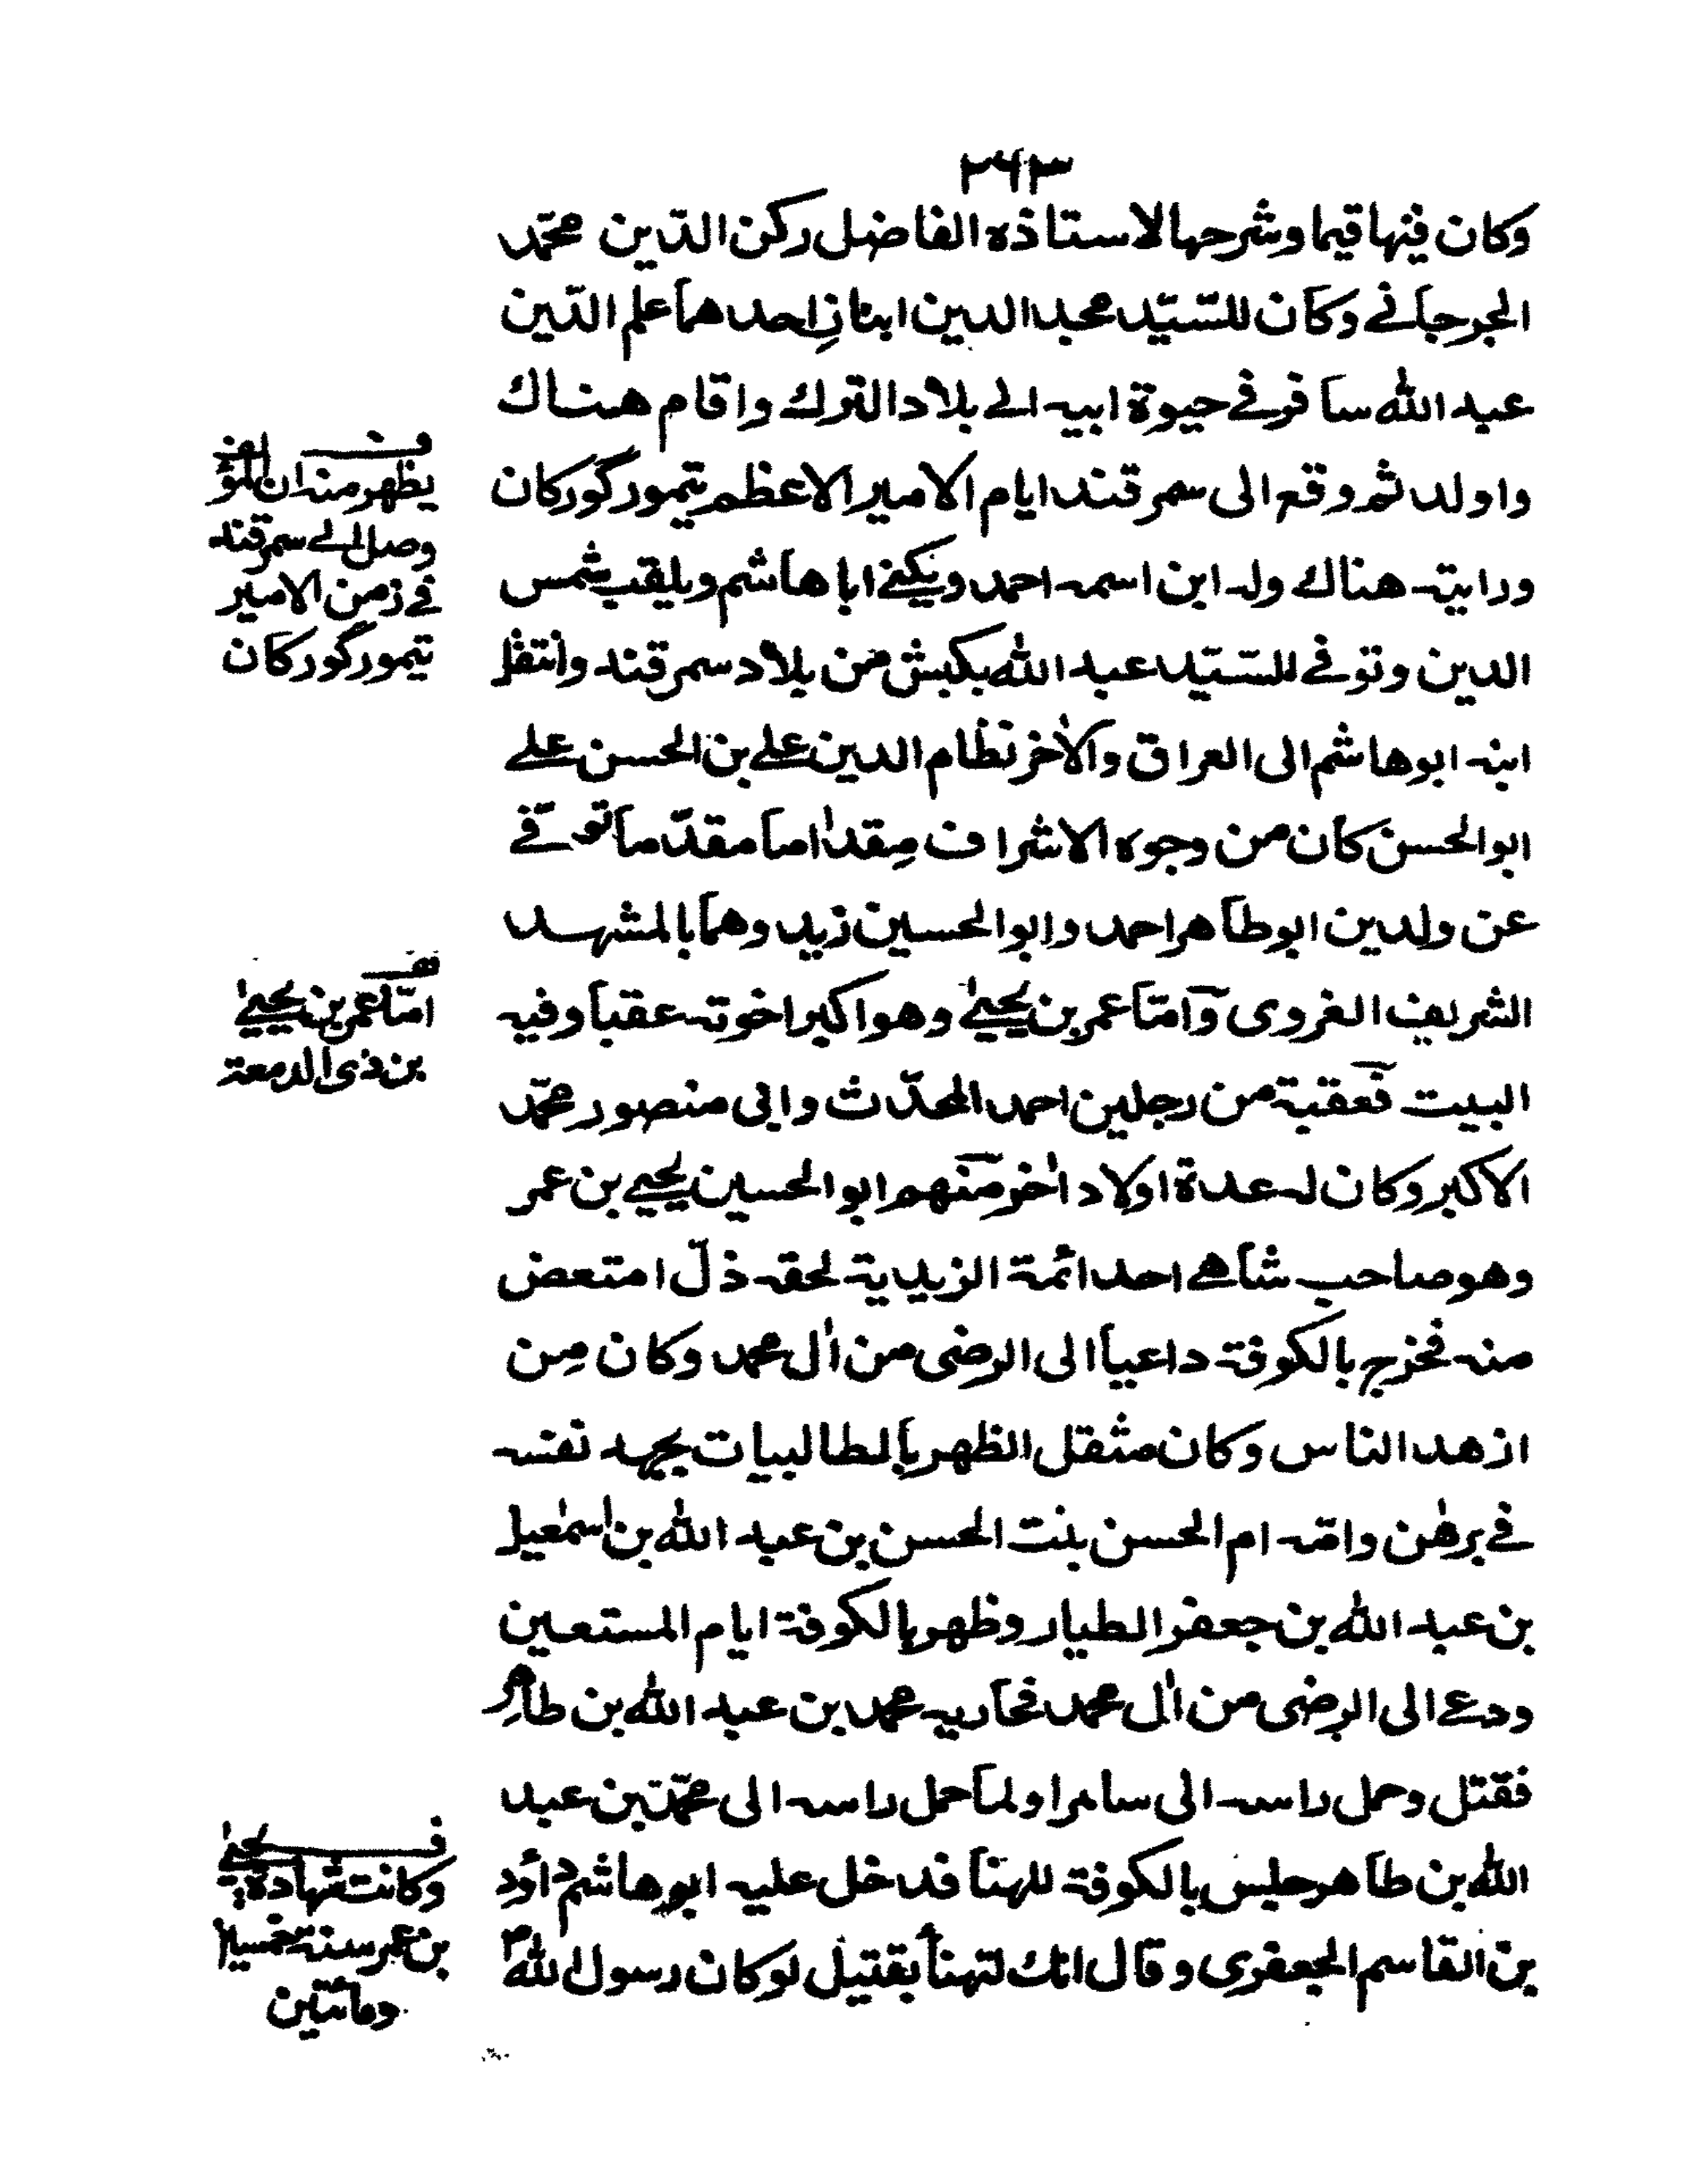 ٢٦٣
وكان فيها قيما وشرحها لاستاذه الفاضل ركن الدّين محمّد
الجرجاني وكان للسّيّد مجد الدين ابنان احدهما علم الدّين
عبد الله سافر في حيوة ابيه الى بلاد الترك واقام هناك
واولد ثم وقع الى سمرقند ايام الامير الاعظم تيمور گوركان
ورايته هناك وله ابن اسمه احمد ويكنى ابا هاشم ويلقب شمس
الدين وتوفي للسّيّد عبد الله بكبش من بلاد سمرقند وانتقل
ابنه ابو هاشم الى العراق والاٰخر نظام الدين علي بن الحسن علي
ابو الحسن كان من وجوه الاشراف مقداما مقدّما توفّي
عن ولدين ابو طاهر احمد وابو الحسين زيد وهما بالمشهد
الشريف الغروى وامّا عمر بن يحيىٰ وهو اكبر اخوته عقبا وفيه
البيت فعقبة من رجلين احمد المحدّث وابى منصور محمّد
الاكبر وكان له عدة اولاد اٰخر منهم ابو الحسين يحيى بن عمر
وهو صاحب شاهي احد ائمة الزيدية لحقه ذلّ امتعض
منه فخرج بالكوفة داعيا الى الرضى من اٰل محمد وكان مِن
ازهد الناس وكان مثقل الظهر بالطالبيات بجهد نفسه
في برهن وامّه ام الحسن بنت الحسن بن عبد الله بن اسمٰعيل
بن عبد الله بن جعفر الطيار وظهر بالكوفة ايام المستعين
ودعى الى الرضى من اٰل محمد فحاربه محمد بن عبد الله بن طاهر
فقتل وحمل راسه الى سامرا ولما حمل راسه الى محمّد بن عبد
الله بن طاهر جلس بالكوفة للهنا فدخل عليه ابو هاشم داود
بن القاسم الجعفرى وقال انك لتهنأ بقتيل لو كان رسول الله ص
يظهر منه ان المؤلف
وصل الى سمرقند
في زمن الامير
تيمور گوركان
امّا عمر بن يحيىٰ
بن ذى الدمعة
وكانت شهادة يحيىٰ
بن عمر سنة خمسين
ومائتين